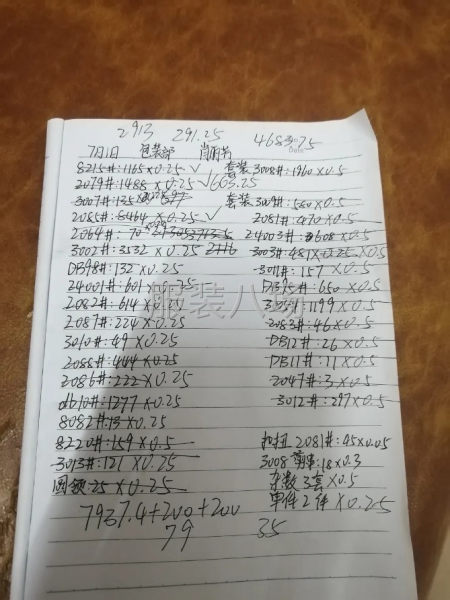 2913 291.25 4683.75
7月1日 包装部
8215#:1165×0.25 ✓ 套装3008#:1960×0.5
2079#:1488×0.25 ✓605.25
3007#:135 套装309#:580×0.5
2085#:8464×0.25 ✓ 2081#:470×0.5
2064#:70 24003#:608×0.5
3002#:3532×0.25 2116 3003#:481×0.5
DB98#:132×0.25 3011#:157×0.5
24001#:601×0.25 DB95#:650×0.5
2082#:614×0.25 1199×0.5
2087#:224×0.25 2083#:46×0.5
3010#:49×0.25 DB12#:26×0.5
2088#:444×0.25 DB11#:11×0.5
2086#:222×0.25 2047#:3×0.5
db10#:1277×0.25 3012#:297×0.5
8082#:13×0.25
8220#:159×0.5 扣扭2081#:45×0.05
3013#:121×0.25 3008 :18×0.3
圆领:25×0.25 杂数3套×0.5
7937.4+200+200 单件2件×0.25
79 35
服装人